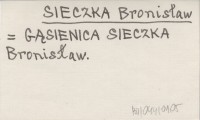 SIECZKA Bronisław
= GĄSIENICA SIECZKA
Bronisław.